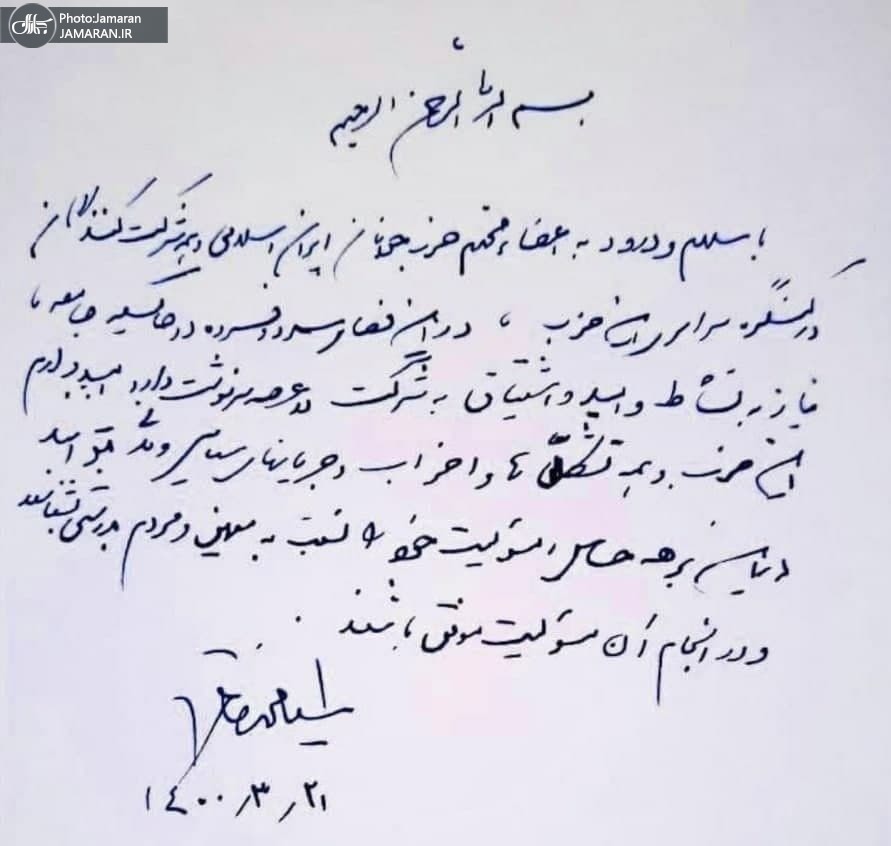 Photo:Jamaran
JAMARAN.IR
بسم الله الرحمن الرحیم
با سلام و درود به اعضاء محترم حزب جوانان ایران اسلامی و همه شرکت کنندگان
در کنگره سراسری این حزب، در این فضای سرد و افسرده در حاکمیت و جامعه،
نیاز به نشاط و امید و اشتیاق به شرکت در عرصه سرنوشت دارد. امیدوارم
این حزب و همه تشکل ها و احزاب و جریانهای سیاسی و مدنی بتوانند
در این برهه حساس مسئولیت خود را نسبت به میهن و مردم بدرستی بشناسند
و در انجام آن مسئولیت موفق باشند.
سید محمد خاتمی
۱۴۰۰٫۳٫۲۱